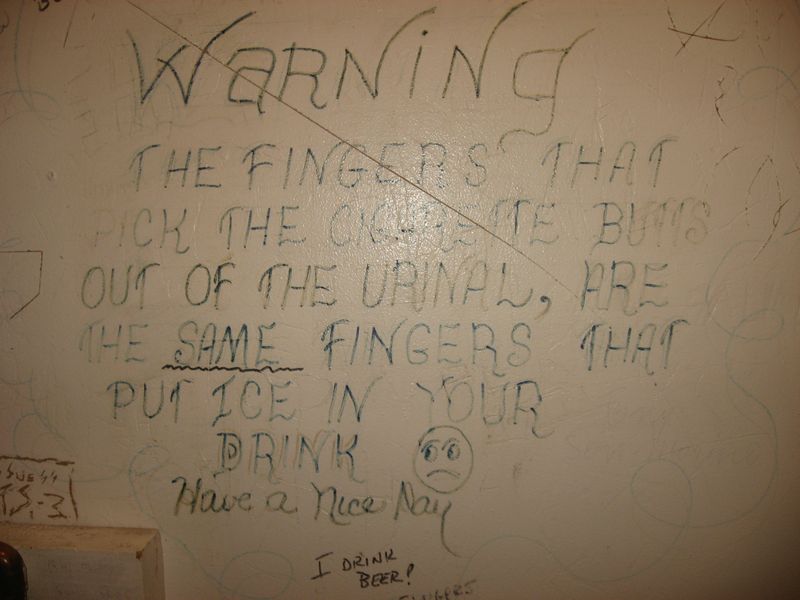 Warning
THE FINGERS THAT
PICK THE CIGARETTE BUTTS
OUT OF THE URINAL, ARE
THE SAME FINGERS THAT
PUT ICE IN YOUR
DRINK
Have a Nice Day
I DRINK
BEER!
FINGERS